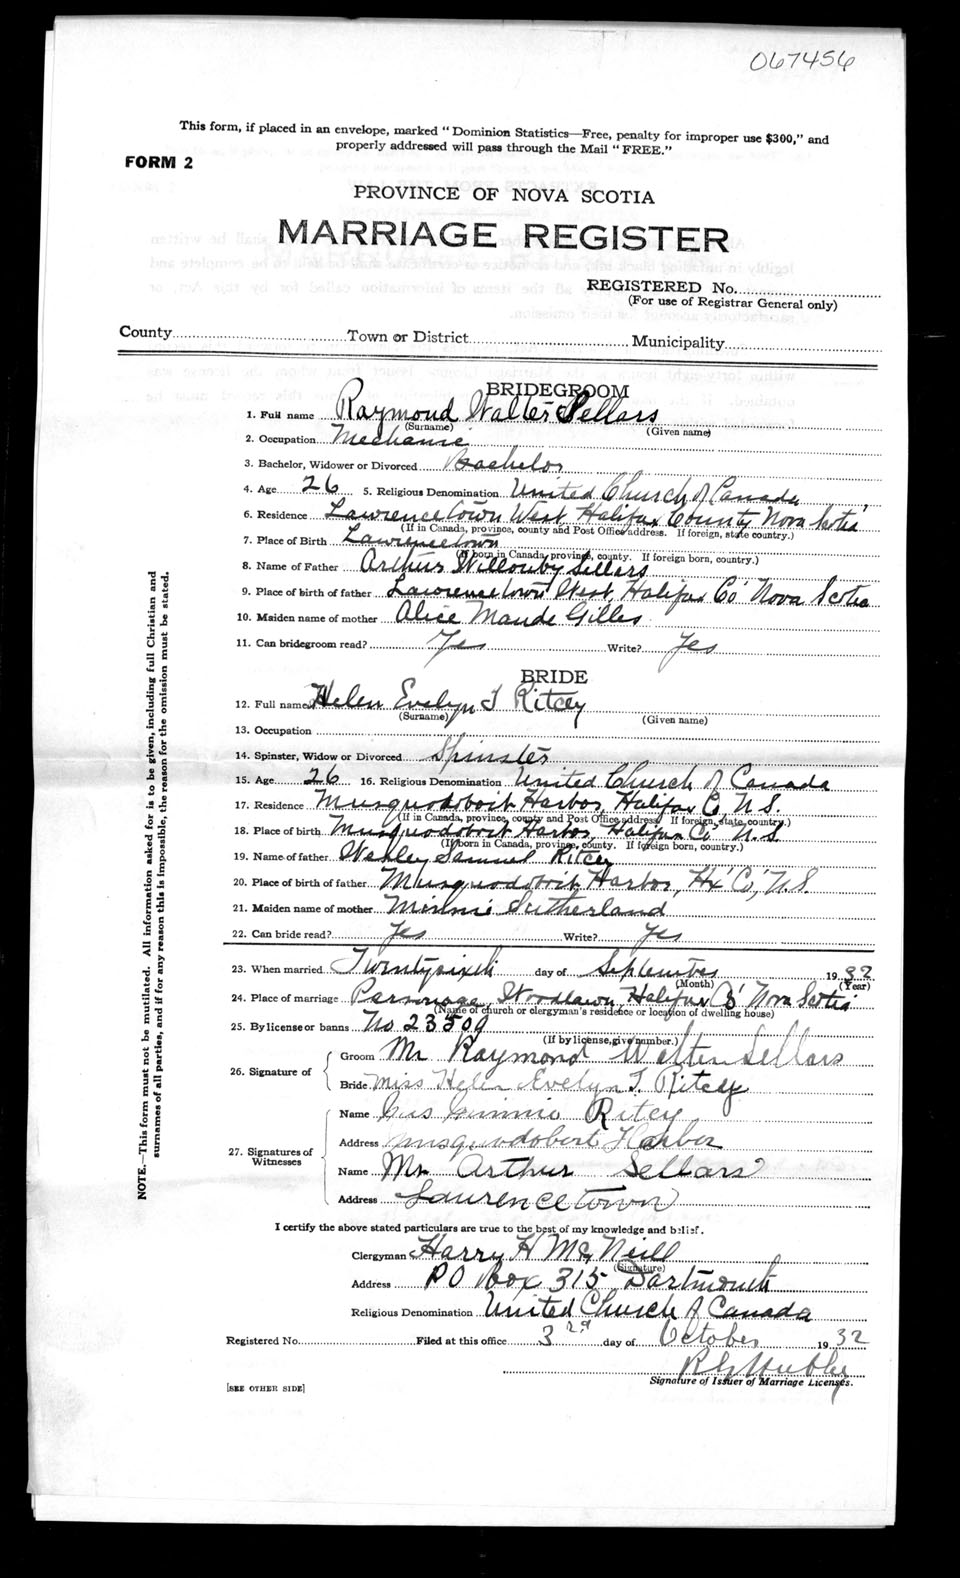 067456
This form, if placed in an envelope, marked "Dominion Statistics—Free, penalty for improper use $300," and
properly addressed will pass through the Mail "FREE."
FORM 2
PROVINCE OF NOVA SCOTIA
MARRIAGE REGISTER
REGISTERED No.
(For use of Registrar General only)
County Town or District Municipality
BRIDEGROOM
1. Full name Raymond Walter Sellars
(Surname) (Given name)
2. Occupation Mechanic
3. Bachelor, Widower or Divorced Bachelor
4. Age 26 5. Religious Denomination United Church of Canada
6. Residence Lawrencetown West, Halifax County Nova Scotia
(If in Canada, province, county and Post Office address. If foreign, state country.)
7. Place of Birth Lawrencetown
(If born in Canada, province, county. If foreign born, country.)
8. Name of Father Arthur Willouby Sellars
9. Place of birth of father Lawrencetown West, Halifax Co' Nova Scotia
10. Maiden name of mother Alice Maude Gilles
11. Can bridegroom read? Yes Write? Yes
BRIDE
12. Full name Helen Evelyn T Ritcey
(Surname) (Given name)
13. Occupation
14. Spinster, Widow or Divorced Spinster
15. Age 26 16. Religious Denomination United Church of Canada
17. Residence Musquodoboit Harbor, Halifax Co, N.S.
(If in Canada, province, county and Post Office address. If foreign, state, country.)
18. Place of birth Musquodoboit Harbor, Halifax Co' N.S
(If born in Canada, province, county. If foreign born, country.)
19. Name of father Wesley Samuel Ritcey
20. Place of birth of father Musquodoboit Harbor, Hx' Co', N.S.
21. Maiden name of mother Minnie Sutherland
22. Can bride read? Yes Write? Yes
23. When married Twentysixth day of September 1932
(Month) (Year)
24. Place of marriage Parsonage, Woodlawn, Halifax Co' Nova Scotia
(Name of church or clergyman's residence or location of dwelling house)
25. By license or banns No 23509
(If by license, give number.)
26. Signature of
Groom Mr Raymond Walter Sellars
Bride Miss Helen Evelyn T. Ritcey
27. Signatures of Witnesses
Name Minnie Ritcey
Address Musquodoboit Harbor
Name Mr Arthur Sellars
Address Laurencetown
I certify the above stated particulars are true to the best of my knowledge and belief.
Clergyman Harry H McNeill
(Signature)
Address PO Box 315 Dartmouth
Religious Denomination United Church of Canada
Registered No. Filed at this office 3rd day of October 1932
Signature of Issuer of Marriage Licenses.
[SEE OTHER SIDE]
NOTE.—This form must not be mutilated. All information asked for is to be given, including full Christian and
surnames of all parties, and if for any reason this is impossible, the reason for the omission must be stated.